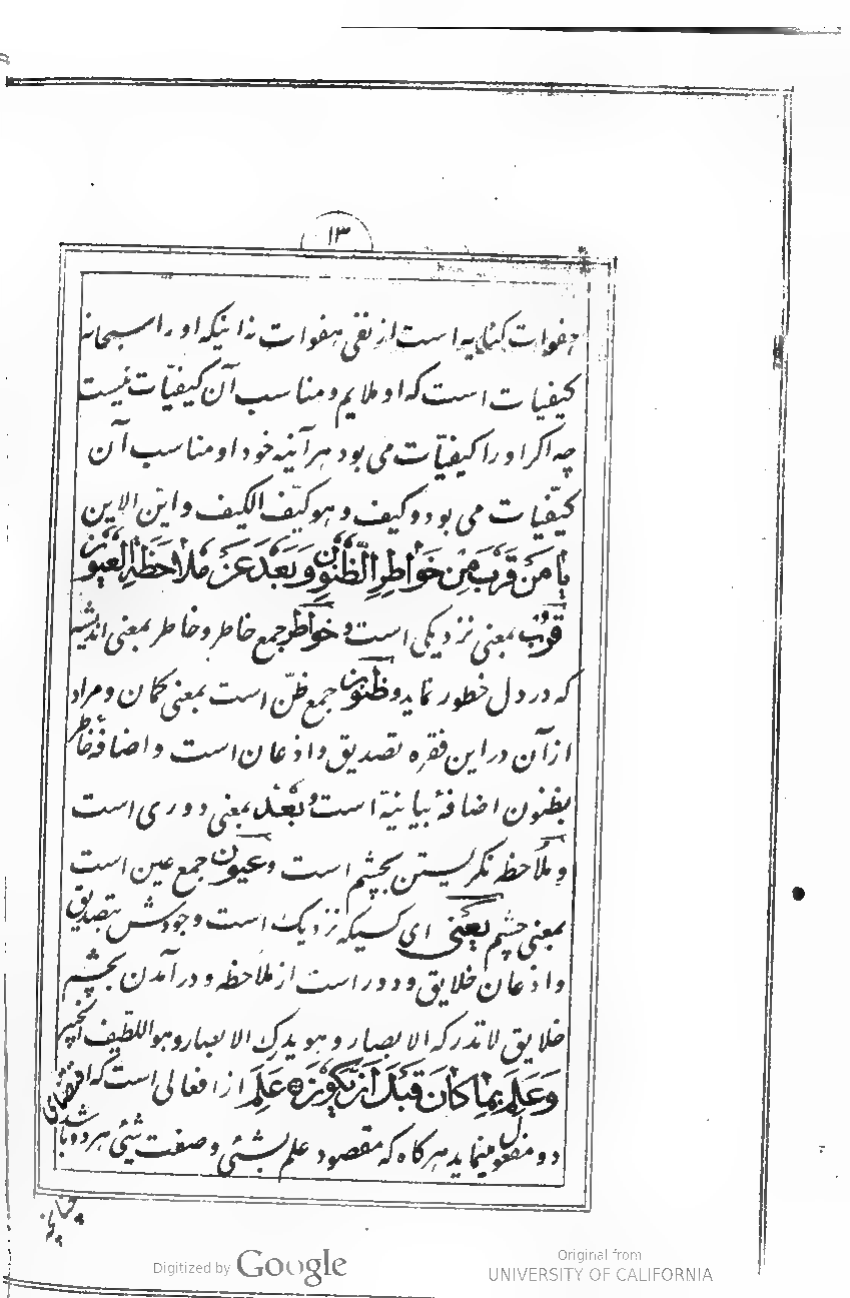 ۱۳
هفوات کنایه است از نفی هفوات نه اینکه او را سبحانه
کیفیات است که او ملایم و مناسب آن کیفیّات نیست
چه اکر او را کیفیّات می بود هر آینه خود او مناسب آن
کیفّیات می بود و کیف و هو کیّف الکیف و ایّن الاین
یا مَنْ قَرُبَ مِنْ خَواطِرِ الظُّنُونِ وَ بَعُدَ عَنْ مُلاحَظَةِ الْعُیُونِ
قُرْب بمعنی نزدیکی است و خَواطِر جمع خاطر و خاطر بمعنی اندیشه
که در دل خطور نماید و ظُنون جمع ظنّ است بمعنی کمان و مراد
از آن در این فقره تصدیق و اذعان است و اضافهٔ خاطر
بظنون اضافهٔ بیانیّة است و بُعْد بمعنی دوری است
و ملاحظه نکریستن بچشم است و عیون جمع عین است
بمعنی چشم یَعْنی ای کسیکه نزدیک است وجودش بتصدیق
و اذعان خلایق و دور است از ملاحظه و در آمدن بچشم
خلایق لاتدرکه الابصار و هو یدرک الابصار و هو اللطیف الخبیر
وَ عَلِمَ بِما کانَ قَبْلَ اَنْ یَکُونَ عَلِمَ از افعالی است که اقتضای
دو مفعول مینماید هرکاه که مقصود علم بشئی و صفت شئی هر دو باشد
چنانچه
Digitized by Google
Original from
UNIVERSITY OF CALIFORNIA